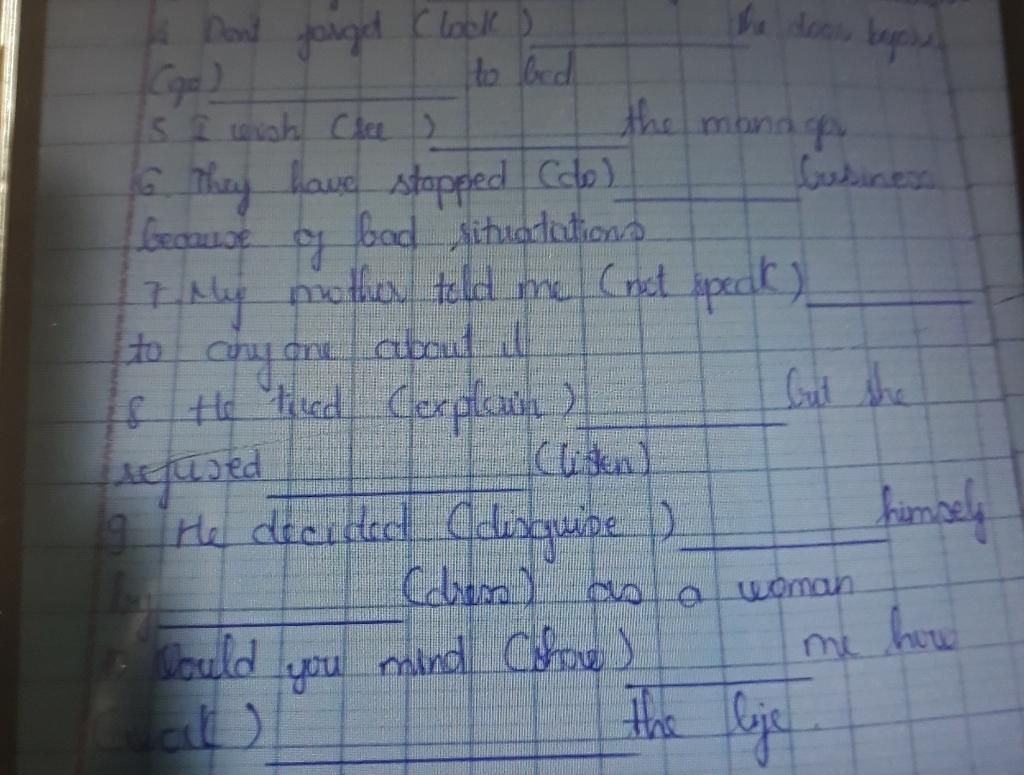 4 Don't forget (lock) ________ the door before
(go) ________ to bed
5 I wish (see) ________ the manager
6 They have stopped (do) ________ business
because of bad situadations
7 My mother told me (not speak) ________
to anyone about it
8 He tried (explain) ________ but she
refused ________ (listen)
9 He decided (disguise) ________ himself
by ________ (dress) as a woman
Would you mind (show) ________ me how
________ the